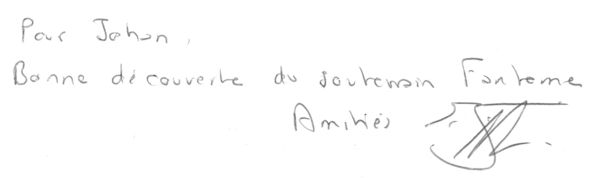 Pour Johan,
Bonne découverte du souterrain Fantôme
Amitiés